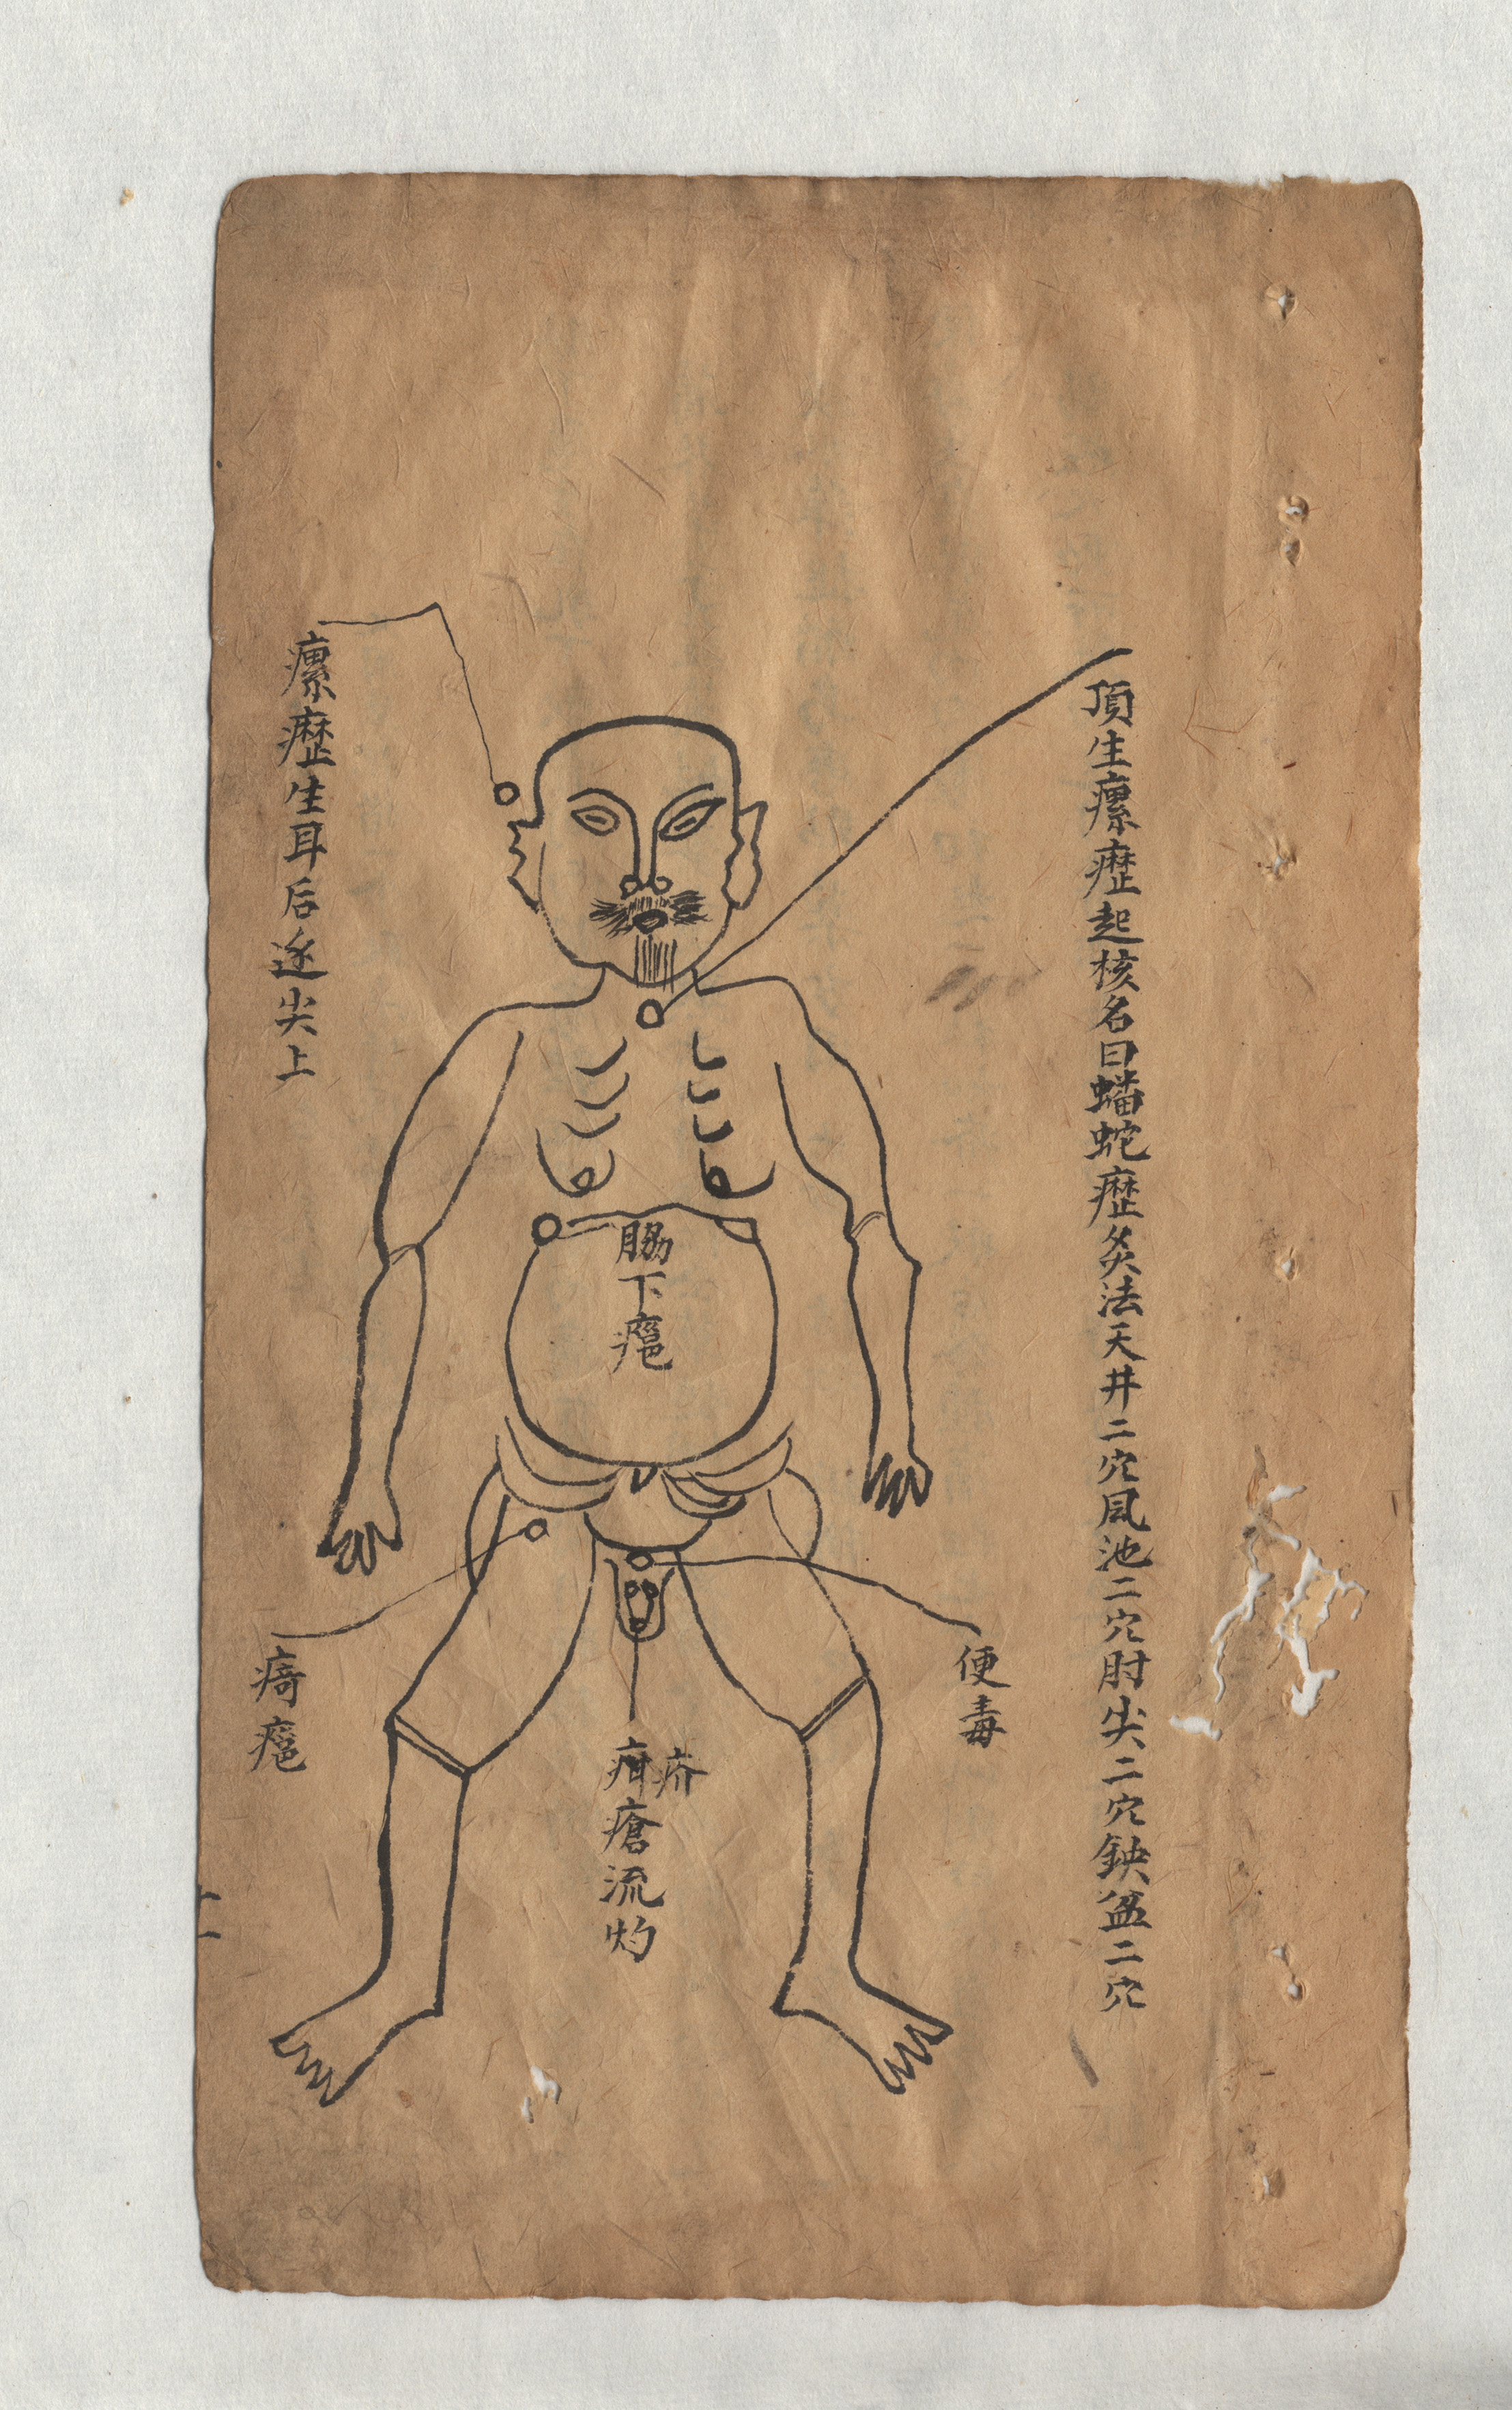 頂生瘰癧起核名曰蟠蛇癧灸法天井二穴風池二穴肘尖二穴鈌盆二穴
脇下
便毒
疥
疳瘡流灼
瘰癧生耳后逐尖上